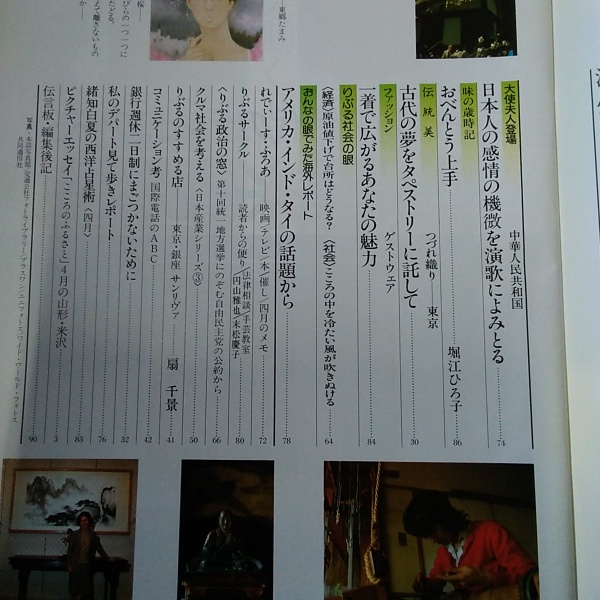 東郷たまみ
桜――
びらの一つ一に
たどる。
えて離さないもの
か――
大使夫人登場
中華人民共和国
日本人の感情の機微を演歌によみとる 74
味の歳時記
おべんとう上手 堀江ひろ子 86
伝統美
つづれ織り 東京
古代の夢をタペストリーに託して 30
ファッション
ゲストウェア
一着で広がるあなたの魅力 84
りぶる社会の眼
〈経済〉原油値下げで台所はどうなる? 〈社会〉こころの中を冷たい風が吹きぬける 64
おんなの眼でみた海外レポート
アメリカ・インド・タイの話題から 78
れでぃーす・ふろあ 映画/テレビ/本/催し/四月のメモ 72
りぶるサークル 読者からの便り/法律相談/手芸教室 円山雅也/末松慶子 80
〈りぶる政治の窓〉 第十回統一地方選挙にのぞむ自由民主党の公約から 66
クルマ社会を考える〈日本産業シリーズ③〉 50
りぶるのすすめる店 東京・銀座 サンリヴァ 41
コミュニケーション考 国際電話のABC 扇千景 42
銀行週休二日制にまごつかないために 32
私のデパート見て歩きレポート 76
緒知白夏の西洋占星術〈四月〉 83
ピクチャーエッセイ「こころのふるさと」4月の山形・米沢 3
伝言板・編集後記 90